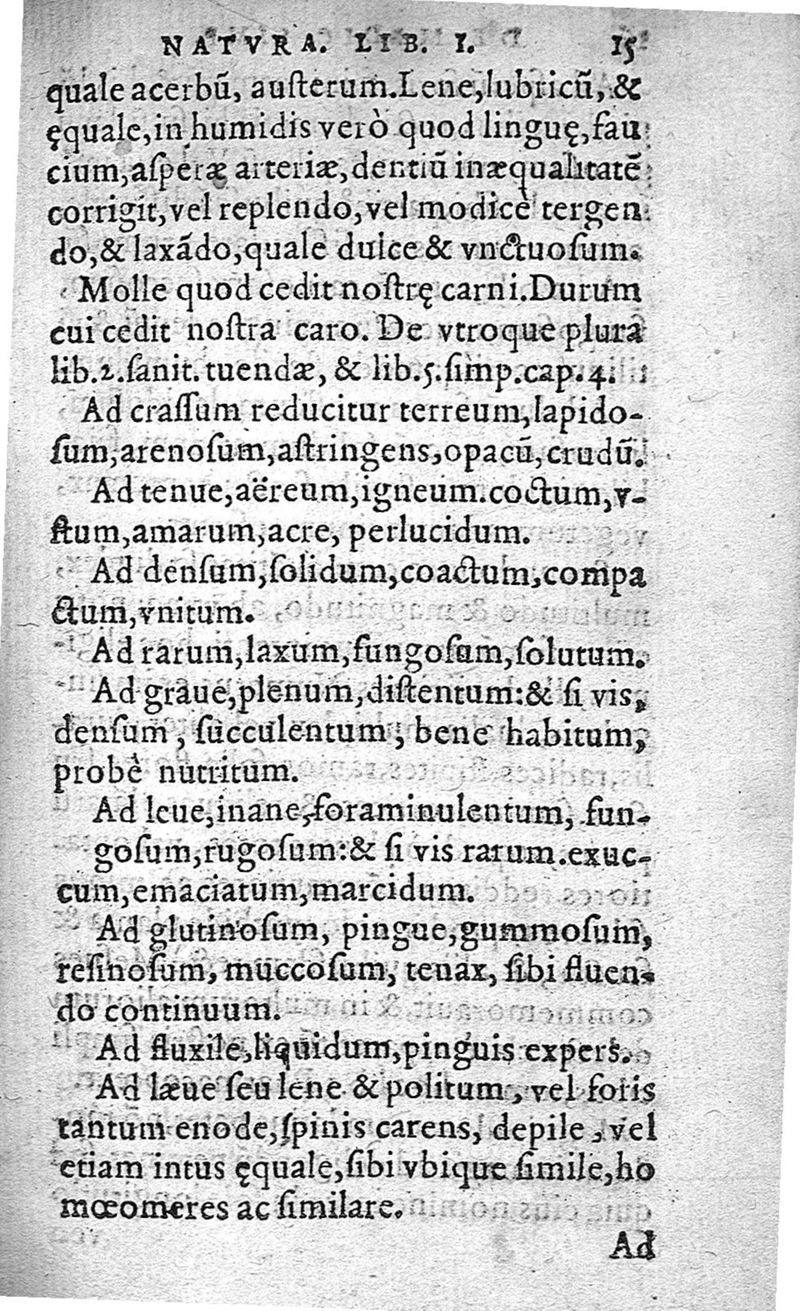 NATVRA. LIB. I. 15
quale acerbũ, austerum. Lene, lubricũ, &
ęquale, in humidis verò quod linguę, fau
cium, asperæ arteriæ, dentiũ inæqualitatẽ
corrigit, vel replendo, vel modicè tergen
do, & laxãdo, quale dulce & vnctuosum.
Molle quod cedit nostrę carni. Durum
cui cedit nostra caro. De vtroque plura
lib. 2. sanit. tuendæ, & lib. 5. simp. cap. 4.
Ad crassum reducitur terreum, lapido-
sum, arenosum, astringens, opacũ, crudũ.
Ad tenue, aëreum, igneum. coctum, v-
stum, amarum, acre, perlucidum.
Ad densum, solidum, coactum, compa
ctum, vnitum.
Ad rarum, laxum, fungosum, solutum.
Ad graue, plenum, distentum: & si vis,
densum, succulentum, bene habitum,
probè nutritum.
Ad leue, inane, foraminulentum, fun-
gosum, rugosum: & si vis rarum. exuc-
cum, emaciatum, marcidum.
Ad glutinosum, pingue, gummosum,
resinosum, muccosum, tenax, sibi fluen-
do continuum.
Ad fluxile, liquidum, pinguis expers.
Ad læue seu lene & politum, vel foris
tantum enode, spinis carens, depile, vel
etiam intus ęquale, sibi vbique simile, ho
mœomeres ac similare.
Ad